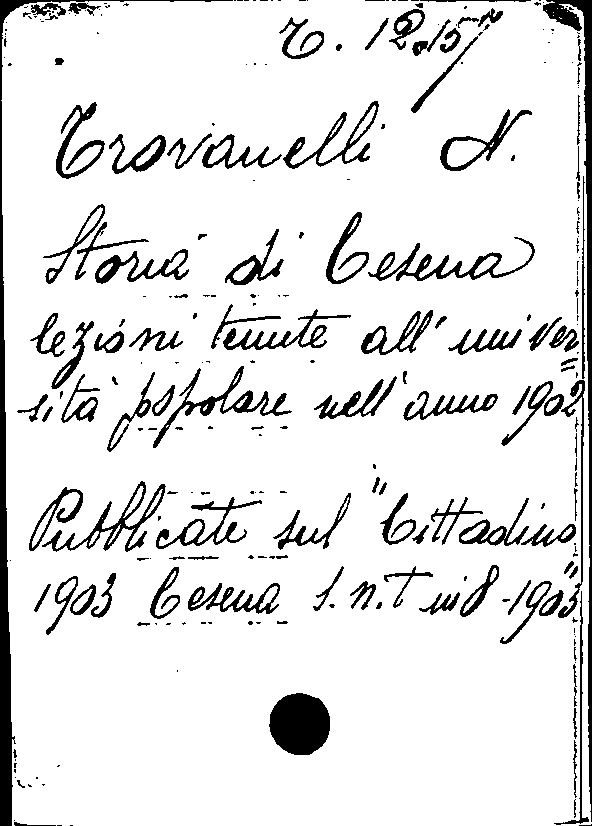 T. 12.157
Trovanelli N.
Storia di Cesena
lezioni tenute all' univer=
sità popolare nell' anno 1902
Pubblicate sul "Cittadino"
1903 Cesena s.n.t in 8 - 1903